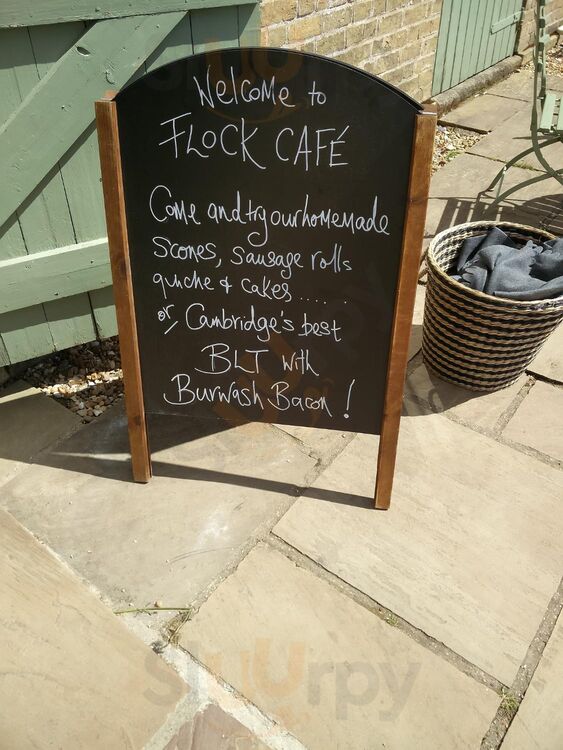 Welcome to
FLOCK CAFÉ
Come and try our homemade
scones, sausage rolls
quiche & cakes .....
or Cambridge's best
BLT with
Burwash Bacon!
Sluurpy